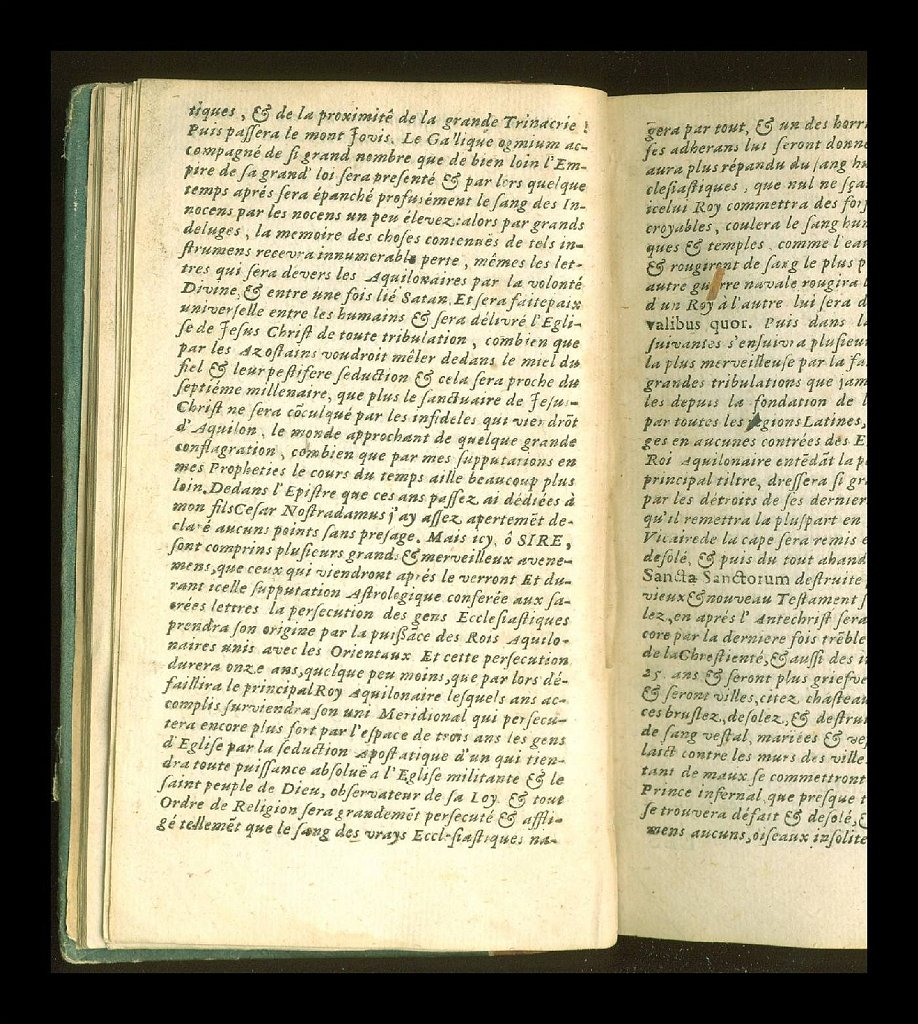 tiques, & de la proximitê de la grande Trinacrie !
Puis paſſera le mont Jovis. Le Gallique ogmium ac-
compagné de ſi grand nombre que de bien loin l'Em-
pire de ſa grand' loi ſera preſenté & par lors quelque
temps aprés ſera épanché profusément le ſang des In-
nocens par les nocens un peu élevez: alors par grands
deluges, la memoire des choſes contenuës de tels in-
ſtrumens recevra innumerable perte, mêmes les let-
tres qui ſera devers les Aquilonaires par la volonté
Divine, & entre une fois lié Satan. Et ſera faite paix
univerſelle entre les humains & ſera délivré l'Egli-
ſe de Jeſus Chriſt de toute tribulation, combien que
par les Azoſtains voudroit mêler dedans le miel du
fiel & leur peſtifere ſeduction & cela ſera proche du
ſeptiéme millenaire, que plus le ſanctuaire de Jeſus-
Chriſt ne ſera cõculqué par les infideles qui viendrõt
d'Aquilon, le monde approchant de quelque grande
conflagration, combien que par mes ſupputations en
mes Propheties le cours du temps aille beaucoup plus
loin. Dedans l'Epiſtre que ces ans paſſez ai dédiées à
mon fils Ceſar Noſtradamus j'ay aſſez apertemẽt de-
claré aucuns points ſans preſage. Mais icy, ô SIRE,
ſont comprins pluſieurs grands & merveilleux avene-
mens, que ceux qui viendront aprés le verront Et du-
rant icelle ſupputation Aſtrologique conferée aux ſa-
crées lettres la perſecution des gens Eccleſiaſtiques
prendra ſon origine par la puiſſãce des Rois Aquilo-
naires unis avec les Orientaux Et cette perſecution
durera onze ans, quelque peu moins, que par lors dé-
faillira le principal Roy Aquilonaire leſquels ans ac-
complis ſurviendra ſon uni Meridional qui perſecu-
tera encore plus fort par l'eſpace de trois ans les gens
d'Egliſe par la ſeduction Apoſtatique d'un qui tien-
dra toute puiſſance abſoluë a l'Egliſe militante & le
ſaint peuple de Dieu, obſervateur de ſa Loy. & tout
Ordre de Religion ſera grandemẽt perſecuté & affli-
gé tellemẽt que le ſang des vrays Eccleſiaſtiques na-
gera par tout, & un des horri
ſes adherans lui ſeront donne
aura plus répandu du ſang hu
cleſiaſtiques, que nul ne ſça
icelui Roy commettra des for
croyables, coulera le ſang hum
ques & temples, comme l'eau
& rougiront de ſang le plus p
autre guerre navale rougira l
d'un Roy à l'autre lui ſera d
valibus quor. Puis dans la
ſuivantes s'enſuivra pluſieur
la plus merveilleuſe par la fa
grandes tribulations que jam
les depuis la fondation de l
par toutes les Regions Latines,
ges en aucunes contrées des E
Roi Aquilonaire entẽdãt la p
principal tiltre, dreſſera ſi gr
par les détroits de ſes dernier
qu'il remettra la pluſpart en
Vicaire de la cape ſera remis e
deſolé, & puis du tout aband
Sancta Sanctorum deſtruite
vieux & nouveau Teſtament ſ
lez, en après l'Antechriſt ſera
core par la derniere fois trẽble
de la Chreſtienté, & auſſi des i
25. ans & ſeront plus griefve
& ſeront villes, citez chaſteau
ces bruſlez, deſolez, & deſtrui
de ſang veſtal, mariées & ve
laict contre les murs des ville
tant de maux ſe commettront
Prince infernal que preſque t
ſe trouvera défait & deſolé, &
mens aucuns, oiſeaux inſolite